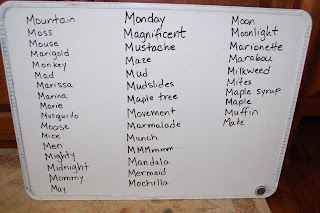 Mountain
Moss
Mouse
Marigold
Monkey
Mad
Marissa
Marina
Marie
Mosquito
Moose
Mice
Men
Mighty
Midnight
Mommy
May
Monday
Magnificent
Mustache
Maze
Mud
Mudslides
Maple tree
Movement
Marmalade
Munch
MMmmmm
Mandala
Mermaid
Mochilla
Moon
Moonlight
Marionette
Marabou
Milkweed
Mites
Maple syrup
Maple
Muffin
Mate